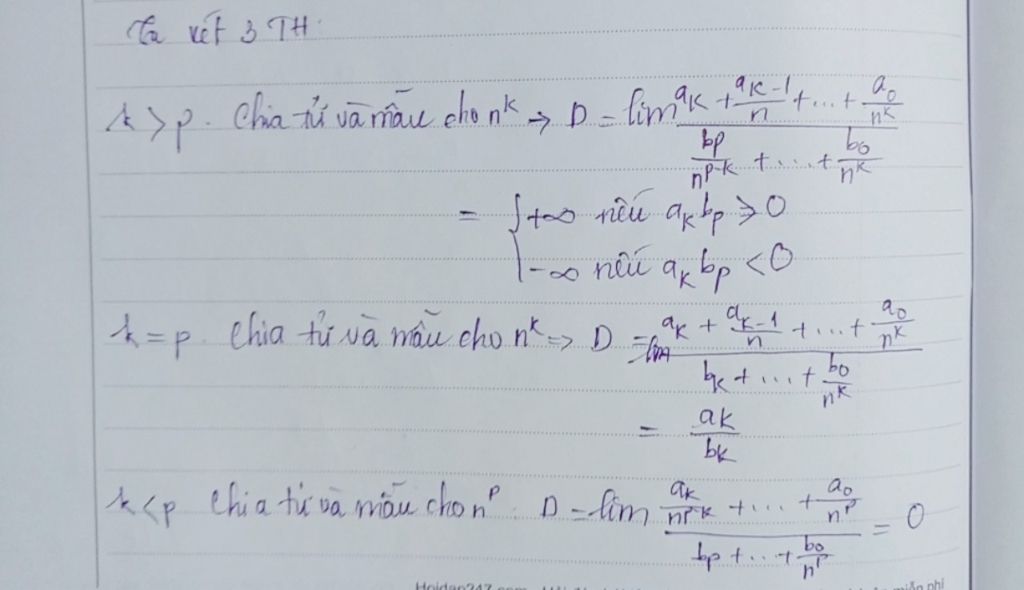 Ta xét 3 TH:
k > p. Chia tử và mẫu cho n^k → D = lim (a_k + a_{k-1}/n + ... + a_0/n^k) / (b_p/n^{p-k} + .... + b_0/n^k)
= { +∞ nếu a_k b_p ⩾ 0
-∞ nếu a_k b_p < 0
k = p. Chia tử và mẫu cho n^k => D = lim (a_k + a_{k-1}/n + ... + a_0/n^k) / (b_k + ... + b_0/n^k)
= a_k / b_k
k < p Chia tử và mẫu cho n^p. D = lim (a_k/n^{p-k} + ... + a_0/n^p) / (b_p + ... + b_0/n^p) = 0